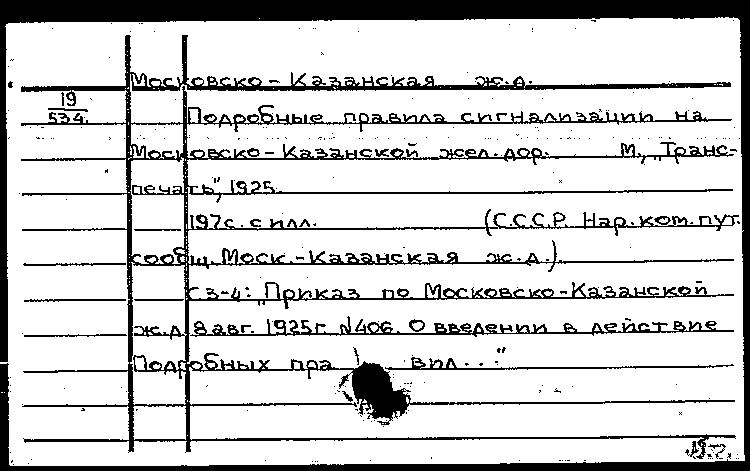 Московско-Казанская ж.д.
19
534.
Подробные правила сигнализации на
Московско-Казанской жел.дор. М., „Транс-
печать", 1925.
197с. с илл. (С.С.С.Р. Нар.ком.пут.
сообщ. Моск.-Казанская ж.д.)
С 3-4: „Приказ по Московско-Казанской
ж.д. 8 авг. 1925г. №406. О введении в действие
Подробных пра вил..."